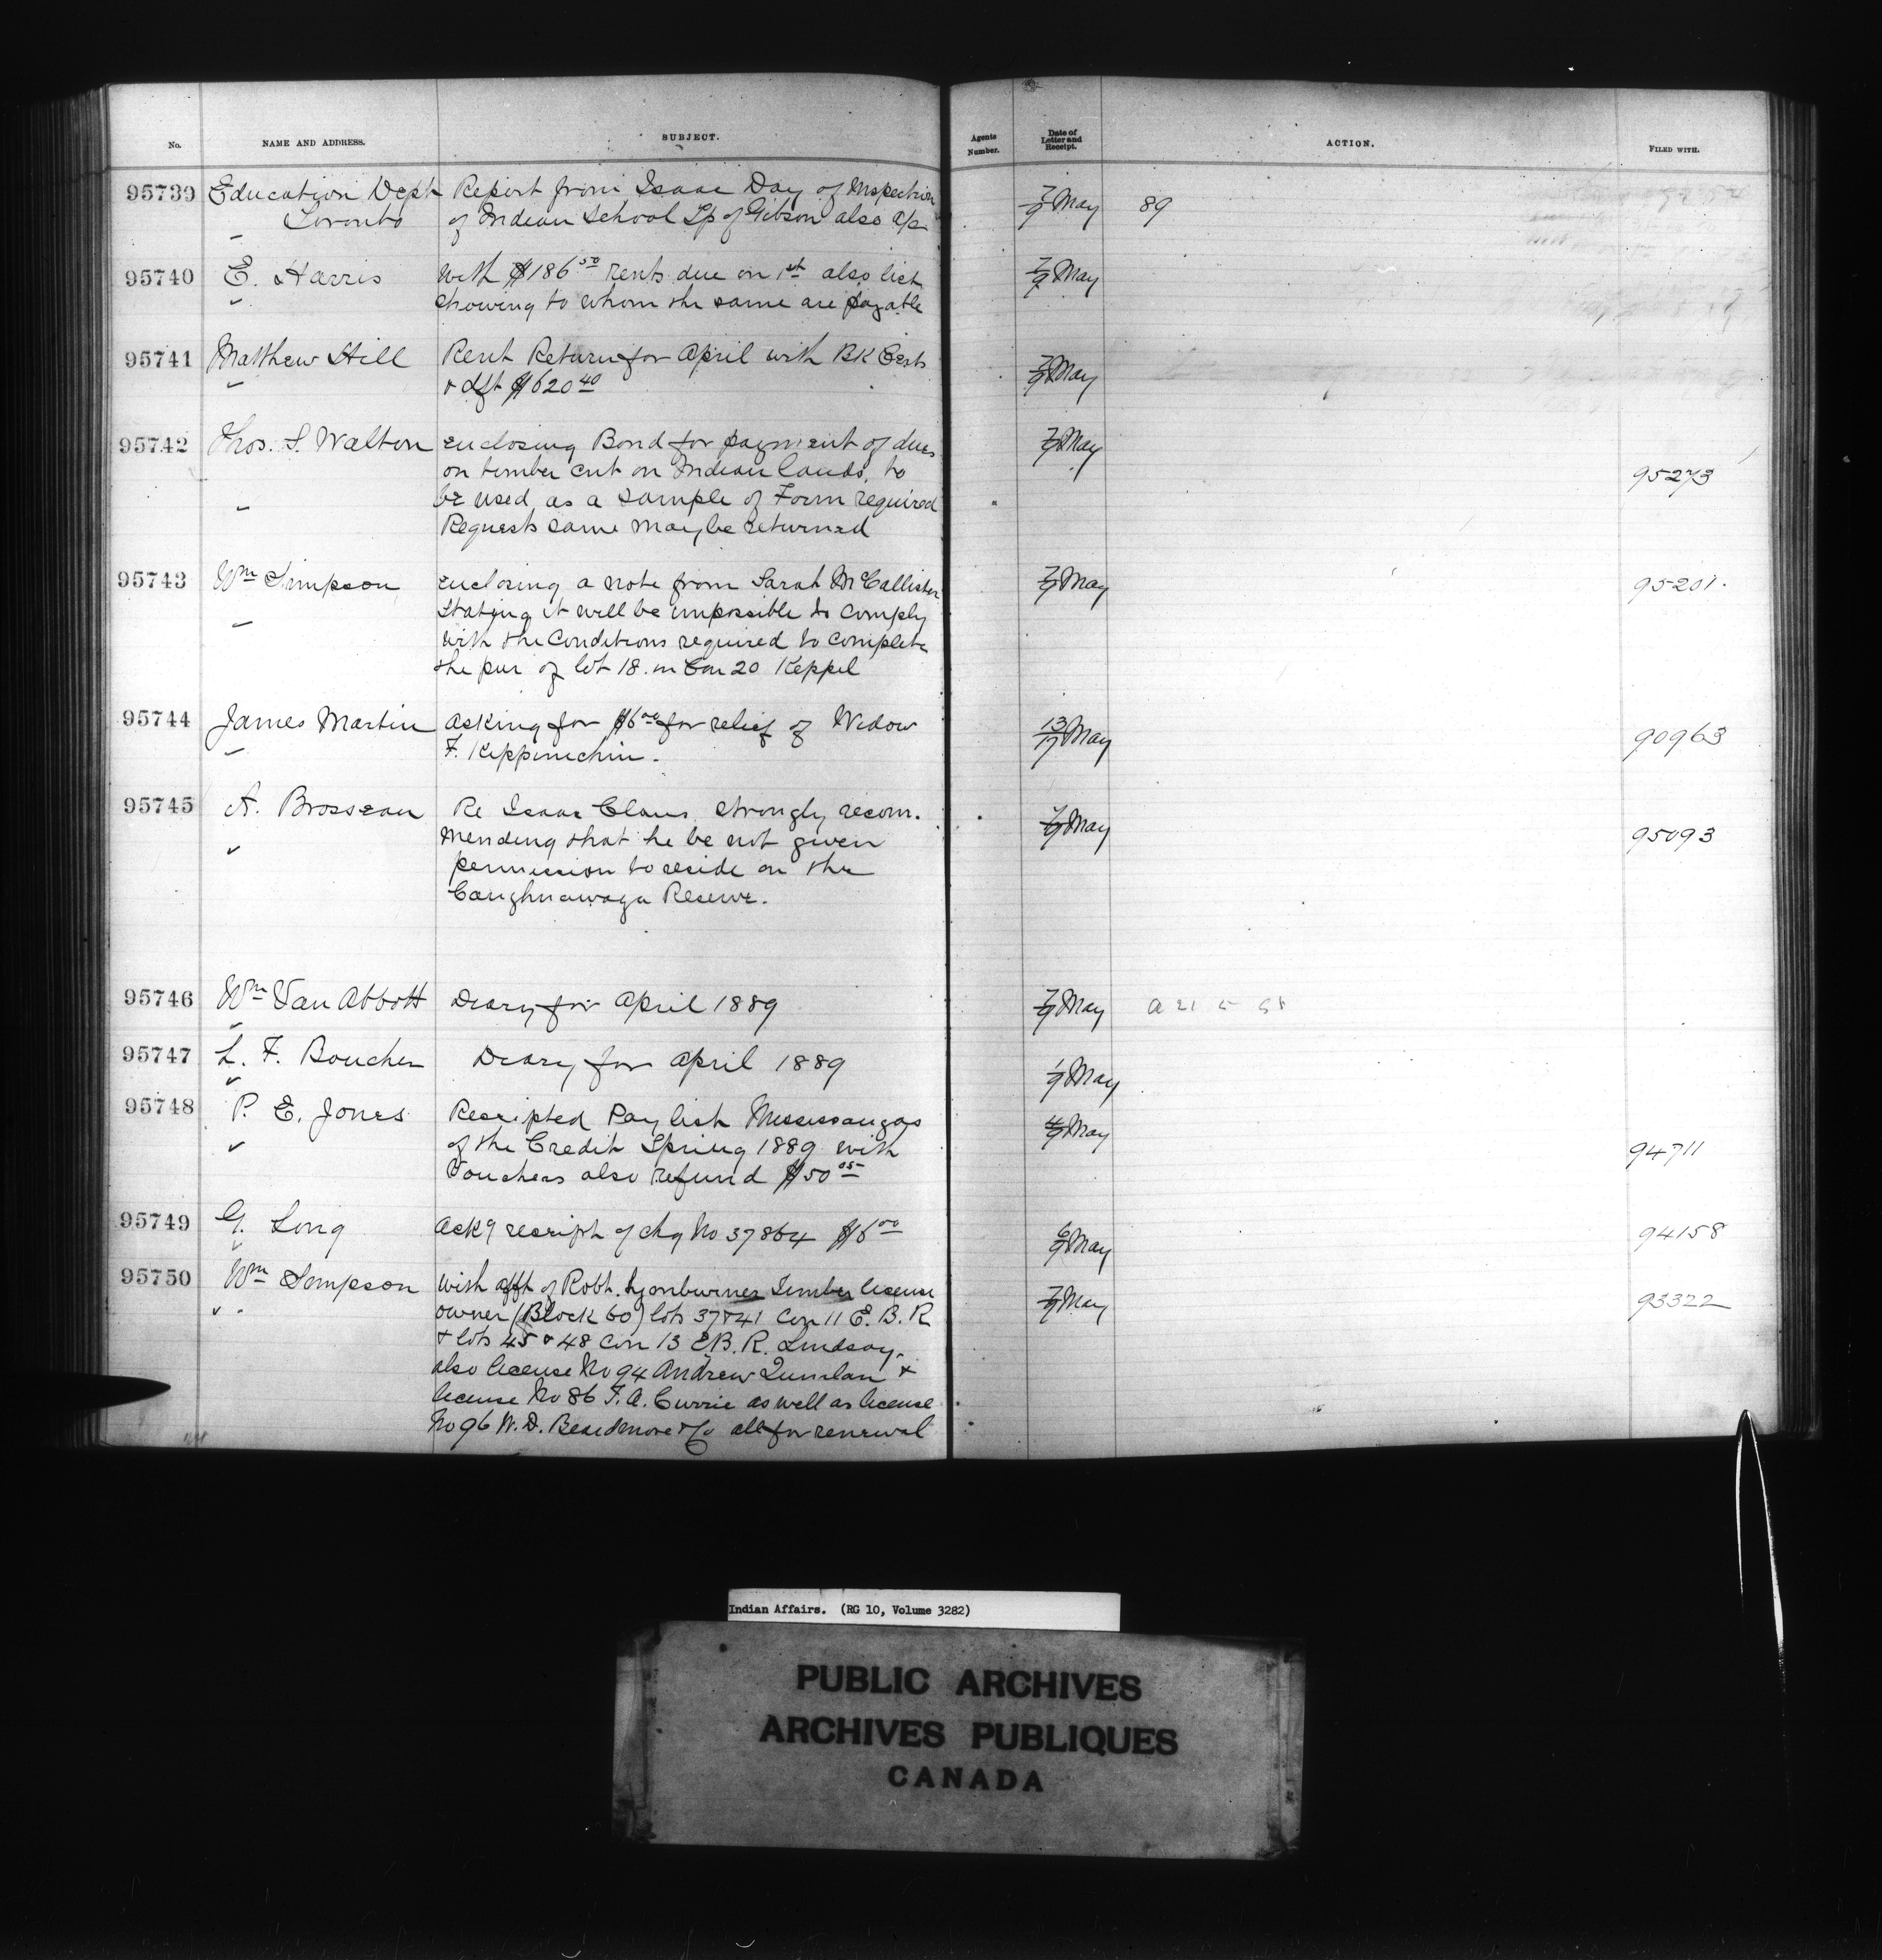 No. NAME AND ADDRESS. SUBJECT. Agents Number. Date of Letter and Receipt. ACTION. FILED WITH.
95739 Education Dept Report from Isaac Day of Inspection 7/9 May 89
Toronto of Indian School Tp of Gibson also a/c
95740 E. Harris With $186 50 rents due on 1st also list 7/9 May
showing to whom the same are payable
95741 Matthew Hill Rent Return for April with BK Certs 7/9 May
& dft $620 40
95742 Thos. S. Walton enclosing Bond for payment of dues 7/9 May
on timber cut on Indian lands, to 95273
be used as a sample of Form required
Requests same may be returned
95743 Wm Simpson enclosing a note from Sarah McCallister 7/9 May 95201.
Stating it will be impossible to comply
with the conditions required to complete
the pur of lot 18. in Con 20 Keppel
95744 James Martin asking for $6 00 for relief of Widow 13/17 May 90963
F. Kippinechin.
95745 A. Brosseau Re Isaac Claus, strongly recom- 7/9 May
mending that he be not given 95093
permission to reside on the
Caughnawaga Reserve.
95746 Wm Van Abbott Diary for April 1889 7/9 May
95747 L. F. Boucher Diary for April 1889 1/9 May
95748 P. E. Jones Receipted Pay list Mississaugas 4/9 May
of the Credit Spring 1889 with 94711
Vouchers also refund $50 05
95749 G. Long Ackg receipt of chq No 37864 $6 00 6/9 May 94158
95750 Wm Simpson With afft of Robt. Lyonburner Timber license 7/9 May 93322
owner (Block 60) lots 37 & 41 Con 11 E. B. R
& lots 45 & 48 Con 13 E B. R. Lindsay.
also license No 94 Andrew Quinlan &
license No 86 F. A. Currie as well as license
No 96 W. D. Beardmore & Co all for renewal
Indian Affairs. (RG 10, Volume 3282)
PUBLIC ARCHIVES
ARCHIVES PUBLIQUES
CANADA